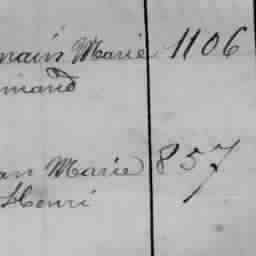 main Marie 1106
mand
an Marie 857
Henri